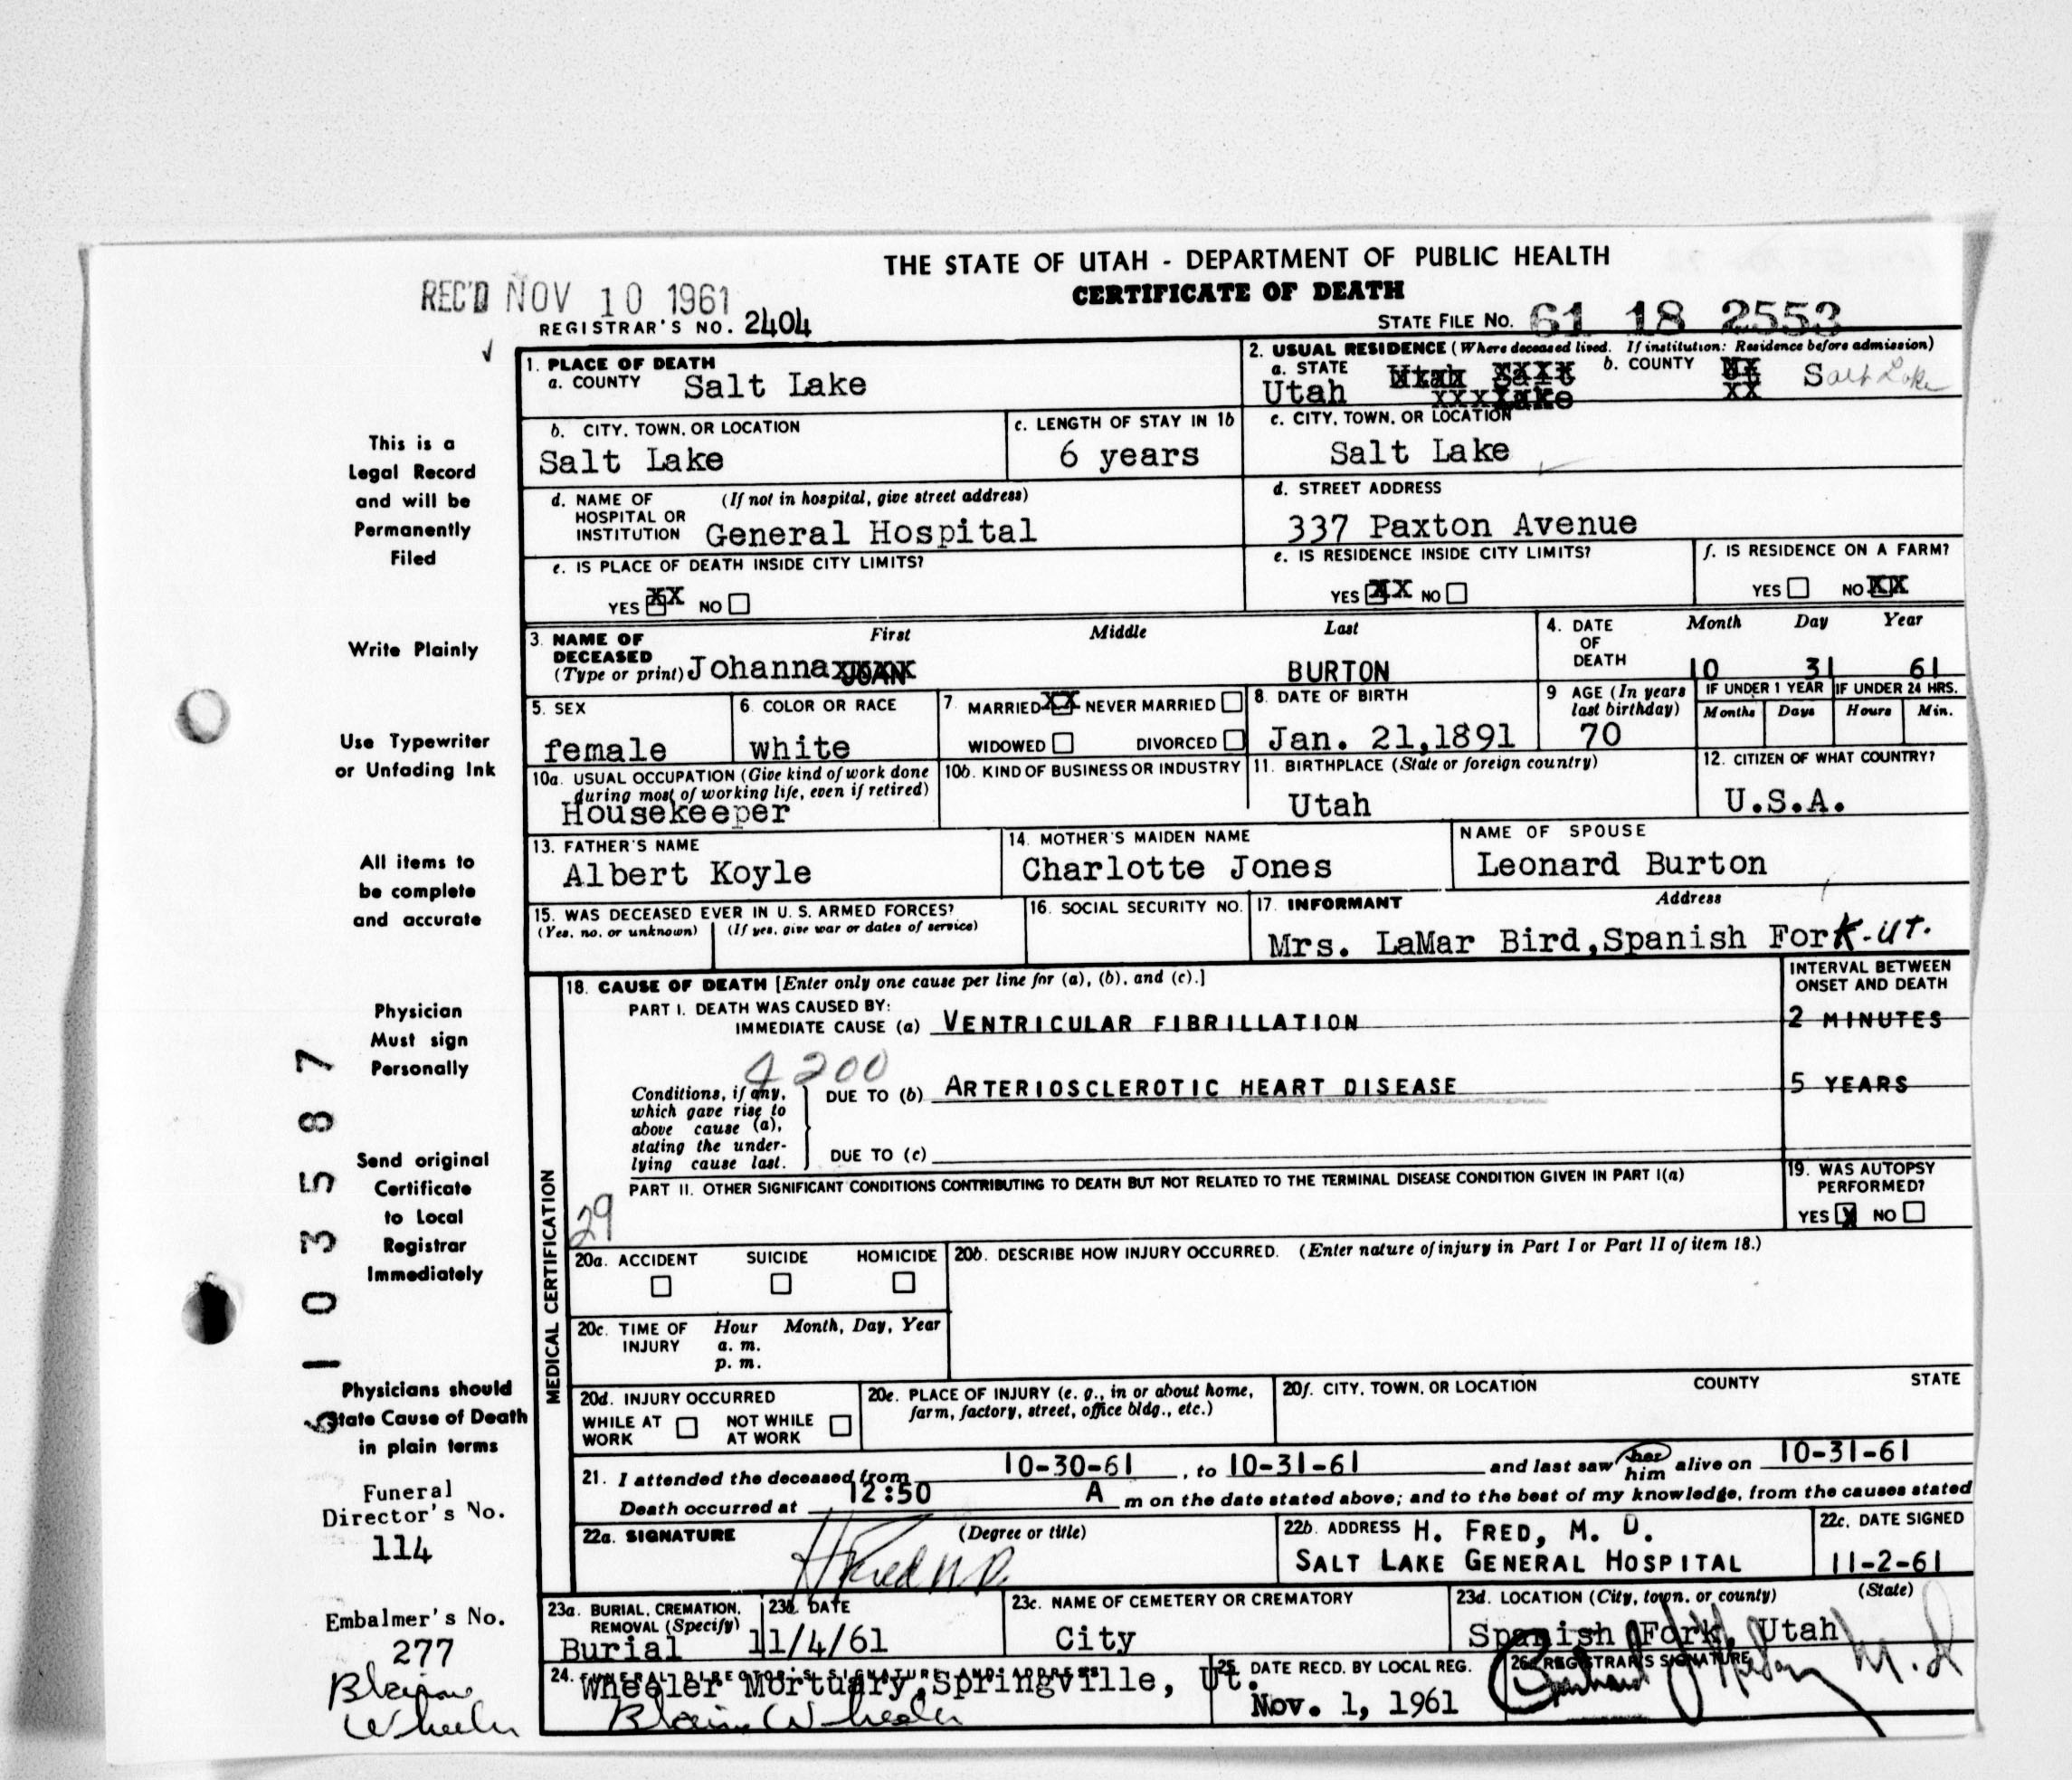 THE STATE OF UTAH - DEPARTMENT OF PUBLIC HEALTH
CERTIFICATE OF DEATH
REC'D NOV 10 1961
REGISTRAR'S NO. 2404
STATE FILE NO. 61 18 2553
1. PLACE OF DEATH
a. COUNTY Salt Lake
2. USUAL RESIDENCE (Where deceased lived. If institution: Residence before admission)
a. STATE Utah b. COUNTY Salt Lake
b. CITY, TOWN, OR LOCATION Salt Lake
c. LENGTH OF STAY IN 1b 6 years
c. CITY, TOWN, OR LOCATION Salt Lake
d. NAME OF HOSPITAL OR INSTITUTION (If not in hospital, give street address) General Hospital
d. STREET ADDRESS 337 Paxton Avenue
e. IS PLACE OF DEATH INSIDE CITY LIMITS?
YES XX NO
e. IS RESIDENCE INSIDE CITY LIMITS?
YES XX NO
f. IS RESIDENCE ON A FARM?
YES NO XX
3. NAME OF DECEASED (Type or print) First Middle Last
Johanna BURTON
4. DATE OF DEATH Month Day Year
10 31 61
5. SEX female
6. COLOR OR RACE white
7. MARRIED XX NEVER MARRIED
WIDOWED DIVORCED
8. DATE OF BIRTH Jan. 21,1891
9 AGE (In years last birthday) 70
IF UNDER 1 YEAR IF UNDER 24 HRS.
Months Days Hours Min.
10a. USUAL OCCUPATION (Give kind of work done during most of working life, even if retired) Housekeeper
10b. KIND OF BUSINESS OR INDUSTRY
11. BIRTHPLACE (State or foreign country) Utah
12. CITIZEN OF WHAT COUNTRY? U.S.A.
13. FATHER'S NAME Albert Koyle
14. MOTHER'S MAIDEN NAME Charlotte Jones
NAME OF SPOUSE Leonard Burton
15. WAS DECEASED EVER IN U. S. ARMED FORCES?
(Yes, no, or unknown) (If yes, give war or dates of service)
16. SOCIAL SECURITY NO.
17. INFORMANT Address
Mrs. LaMar Bird,Spanish Fork-Ut.
MEDICAL CERTIFICATION
18. CAUSE OF DEATH [Enter only one cause per line for (a), (b), and (c).]
INTERVAL BETWEEN ONSET AND DEATH
PART I. DEATH WAS CAUSED BY:
IMMEDIATE CAUSE (a) VENTRICULAR FIBRILLATION 2 MINUTES
4200
Conditions, if any, which gave rise to above cause (a), stating the underlying cause last.
DUE TO (b) ARTERIOSCLEROTIC HEART DISEASE 5 YEARS
DUE TO (c)
PART II. OTHER SIGNIFICANT CONDITIONS CONTRIBUTING TO DEATH BUT NOT RELATED TO THE TERMINAL DISEASE CONDITION GIVEN IN PART I(a)
29
19. WAS AUTOPSY PERFORMED?
YES X NO
20a. ACCIDENT SUICIDE HOMICIDE
20b. DESCRIBE HOW INJURY OCCURRED. (Enter nature of injury in Part I or Part II of item 18.)
20c. TIME OF INJURY Hour Month, Day, Year
a. m.
p. m.
20d. INJURY OCCURRED
WHILE AT WORK NOT WHILE AT WORK
20e. PLACE OF INJURY (e. g., in or about home, farm, factory, street, office bldg., etc.)
20f. CITY, TOWN, OR LOCATION COUNTY STATE
21. I attended the deceased from 10-30-61, to 10-31-61 and last saw her him alive on 10-31-61
Death occurred at 12:50 A m on the date stated above; and to the best of my knowledge, from the causes stated
22a. SIGNATURE (Degree or title)
H Fred M.D.
22b. ADDRESS H. FRED, M. D.
SALT LAKE GENERAL HOSPITAL
22c. DATE SIGNED 11-2-61
23a. BURIAL, CREMATION, REMOVAL (Specify) Burial
23b. DATE 11/4/61
23c. NAME OF CEMETERY OR CREMATORY City
23d. LOCATION (City, town, or county) (State)
Spanish Fork, Utah
24. FUNERAL DIRECTOR'S SIGNATURE AND ADDRESS
Wheeler Mortuary,Springville, Ut.
Blaine Wheeler
25. DATE RECD. BY LOCAL REG. Nov. 1, 1961
26. REGISTRAR'S SIGNATURE
M.D
This is a
Legal Record
and will be
Permanently
Filed
Write Plainly
Use Typewriter
or Unfading Ink
All items to
be complete
and accurate
Physician
Must sign
Personally
Send original
Certificate
to Local
Registrar
Immediately
Physicians should
State Cause of Death
in plain terms
Funeral
Director's No.
114
Embalmer's No.
277
Blaine
Wheeler
6103587